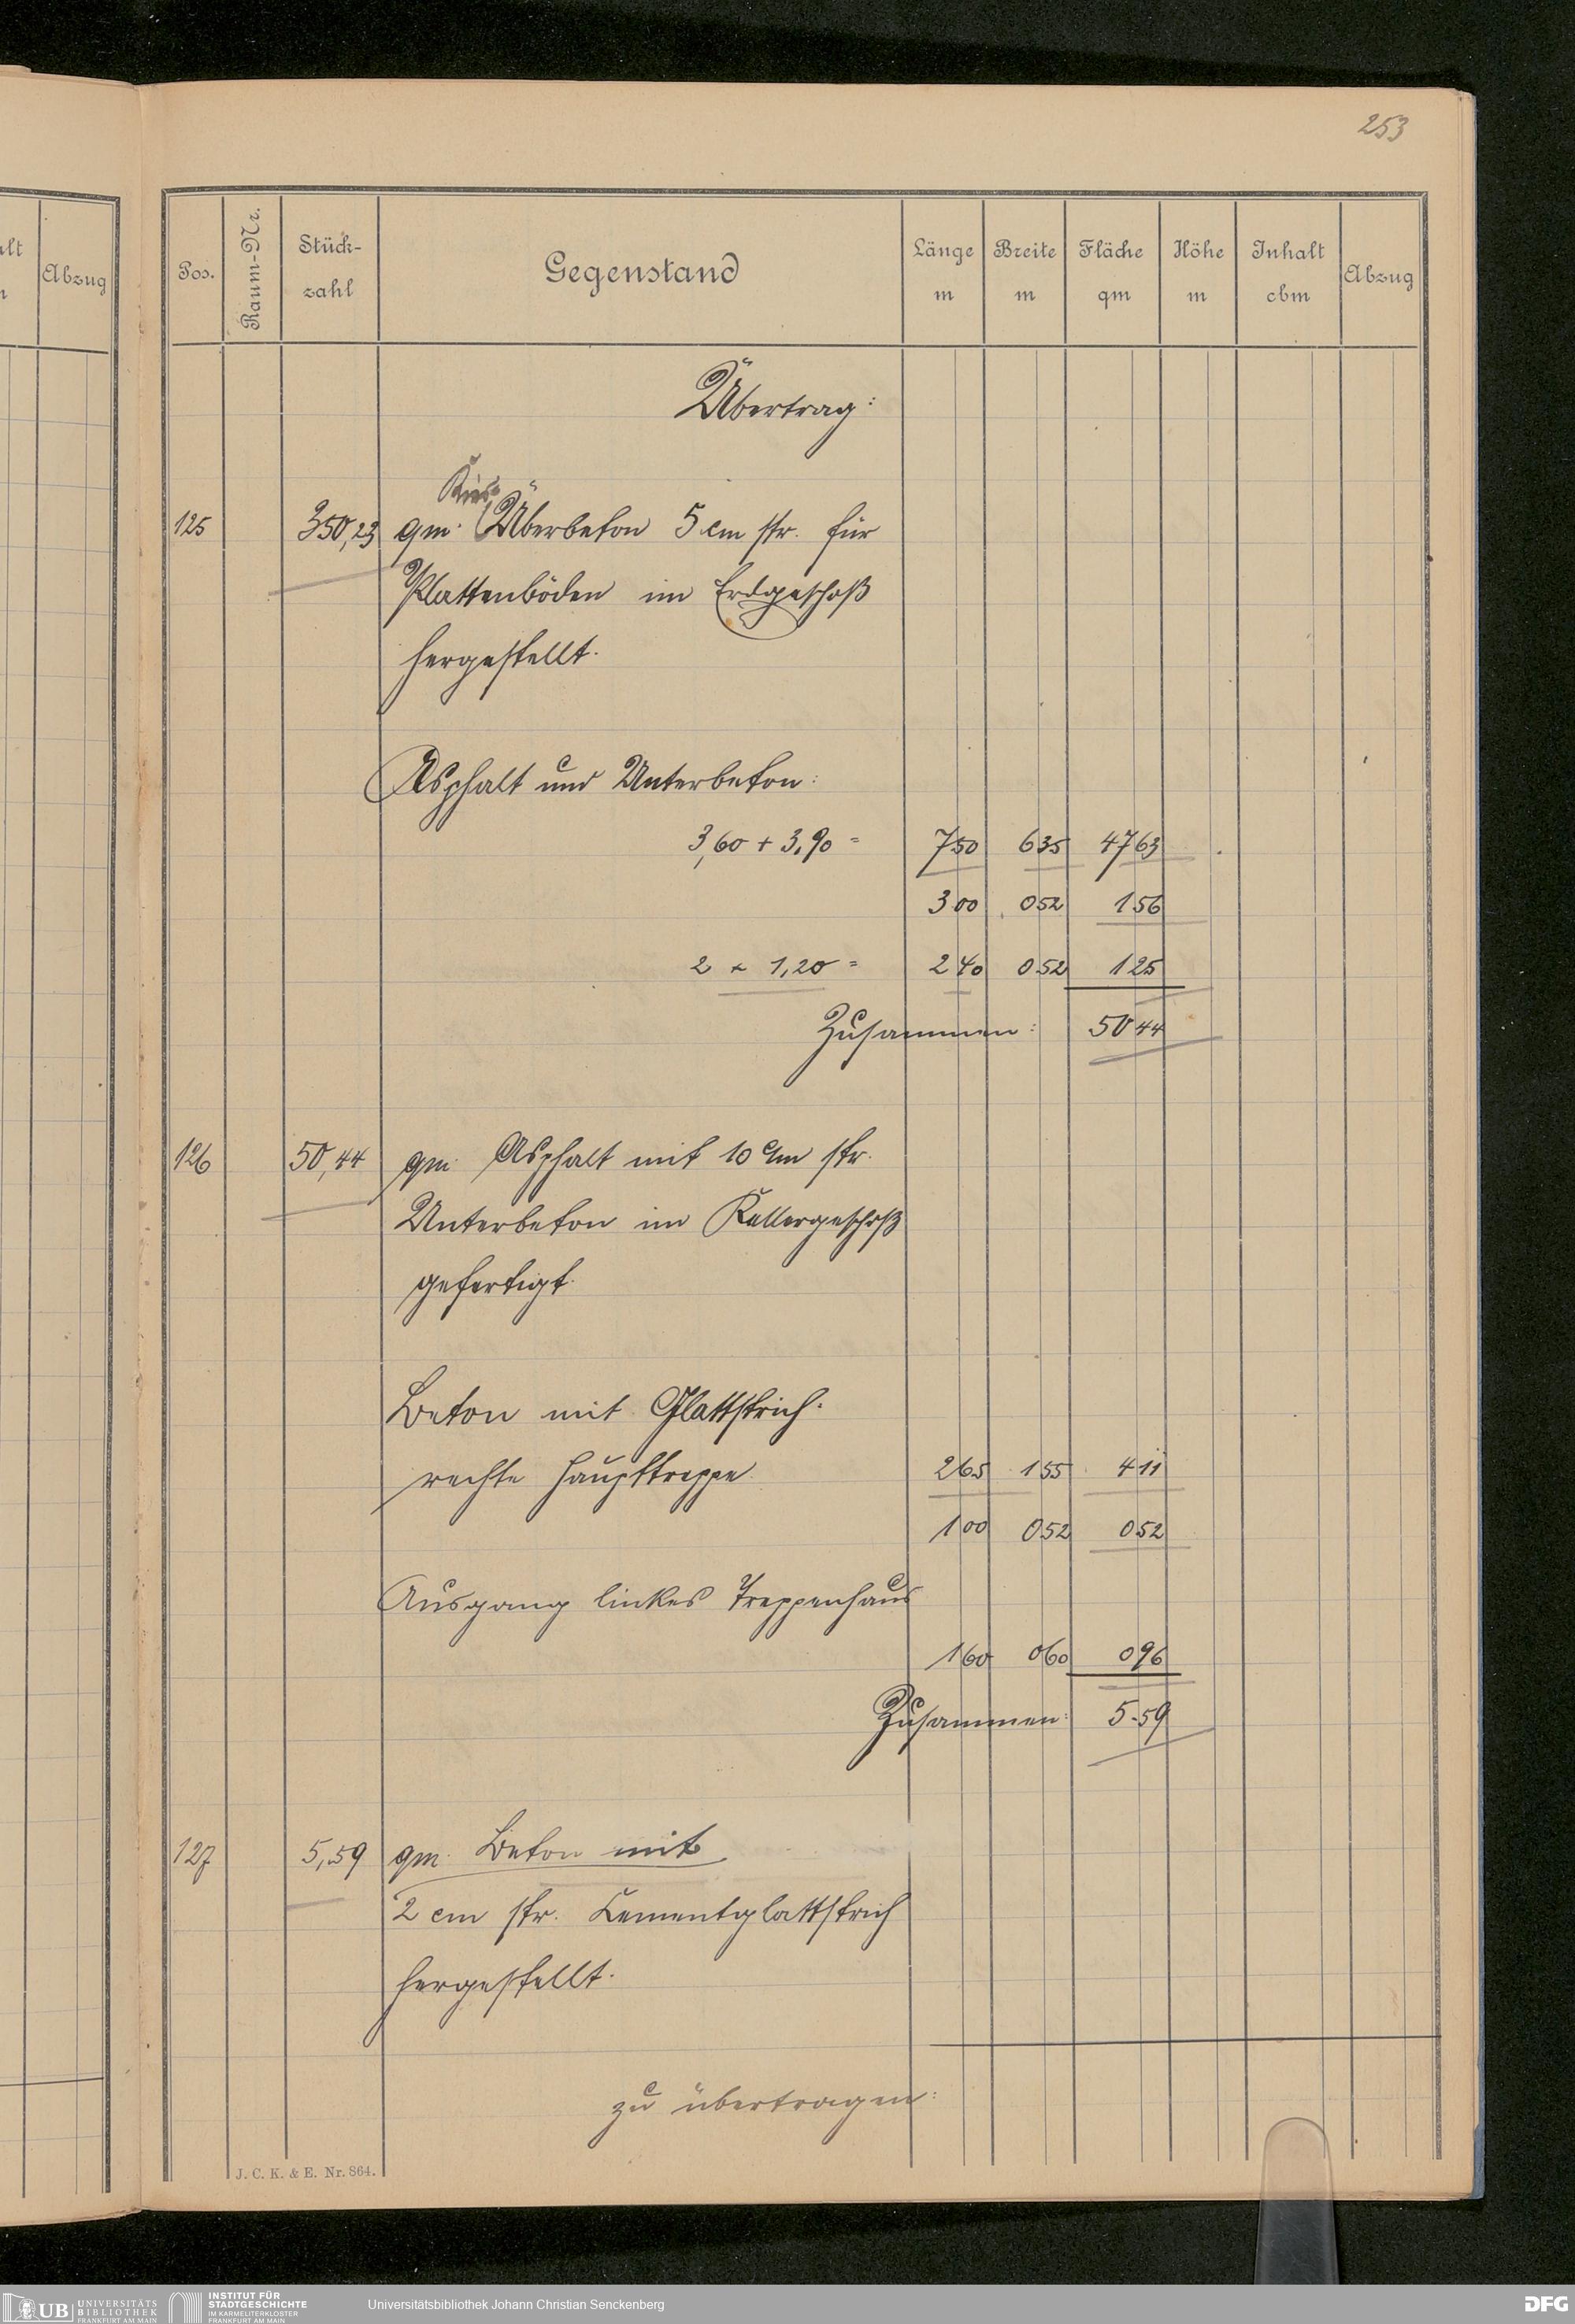 253
alt
Abzug
Pos. Raum-Nr. Stück-zahl Gegenstand Länge m Breite m Fläche qm Höhe m Inhalt cbm Abzug
Übertrag:
Kies-
125 350,23 qm. Überbeton 5 cm str. für
Plattenböden im Erdgeschoß
hergestellt.
Asphalt und Unterbeton:
3,60 + 3,90 = 7 50 6 35 47 63
3 00 0 52 1 56
2 x 1,20 = 2 40 0 52 1 25
Zusammen: 50 44
126 50,44 qm. Asphalt mit 10 c/m str.
Unterbeton im Kellergeschoß
gefertigt.
Beton mit Glattstrich.
rechte Haupttreppe 2 65 1 55 4 11
1 00 0 52 0 52
Ausgang linkes Treppenhaus
1 60 0 60 0 96
Zusammen: 5.59
127 5,59 qm. Beton mit
2 cm str. Cementglattstrich
hergestellt.
zu übertragen:
J. C. K. & E. Nr. 864.
UB UNIVERSITÄTS BIBLIOTHEK FRANKFURT AM MAIN
INSTITUT FÜR STADTGESCHICHTE IM KARMELITERKLOSTER FRANKFURT AM MAIN
Universitätsbibliothek Johann Christian Senckenberg
DFG